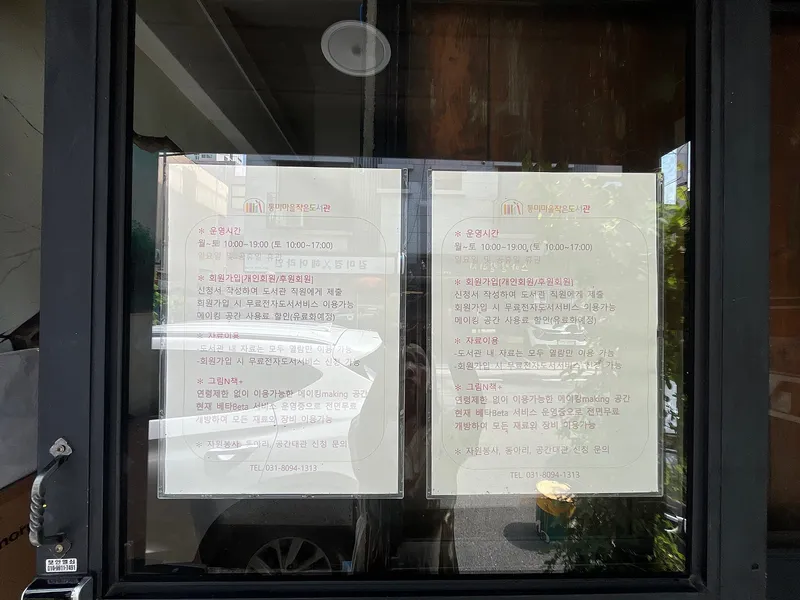 동미마을작은도서관
※ 운영시간
월~토 10:00~19:00 (토 10:00~17:00)
※ 회원가입[개인회원/후원회원]
신청서 작성하여 도서관 직원에게 제출
회원가입 시 무료전자도서서비스 이용가능
메이킹 공간 사용료 할인(유료화예정)
※ 자료이용
-도서관 내 자료는 모두 열람만 이용 가능
-회원가입 시 무료전자도서서비스 신청 가능
※ 그림N책+
연령제한 없이 이용가능한 메이킹making 공간
현재 베타Beta 서비스 운영중으로 전면무료
개방하여 모든 재료와 장비 이용가능
※ 자원봉사, 동아리, 공간대관 신청 문의
TEL. 031-8094-1313
동미마을작은도서관
※ 운영시간
월~토 10:00~19:00 (토 10:00~17:00)
※ 회원가입[개인회원/후원회원]
신청서 작성하여 도서관 직원에게 제출
회원가입 시 무료전자도서서비스 이용가능
메이킹 공간 사용료 할인(유료화예정)
※ 자료이용
-도서관 내 자료는 모두 열람만 이용 가능
-회원가입 시 무료전자도서서비스 신청 가능
※ 그림N책+
연령제한 없이 이용가능한 메이킹making 공간
현재 베타Beta 서비스 운영중으로 전면무료
개방하여 모든 재료와 장비 이용가능
※ 자원봉사, 동아리, 공간대관 신청 문의
TEL. 031-8094-1313